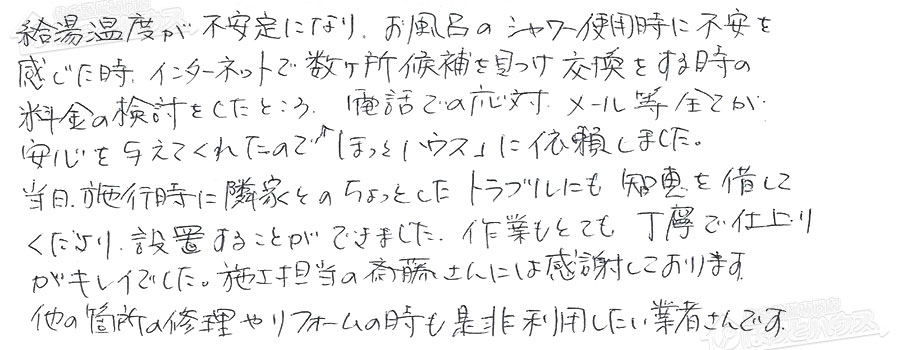 給湯温度が不安定になり、お風呂のシャワー使用時に不安を
感じた時、インターネットで数ヶ所候補を見つけ交換をする時の
料金の検討をしたところ、電話での応対、メール等全てが
安心を与えてくれたので「ほっとハウス」に依頼しました。
当日、施行時に隣家とのちょっとしたトラブルにも知恵を借して
くださり、設置することができました。作業もとても丁寧で仕上り
がキレイでした。施工担当の斎藤さんには感謝しております。
他の箇所の修理やリフォームの時も是非利用したい業者さんです。